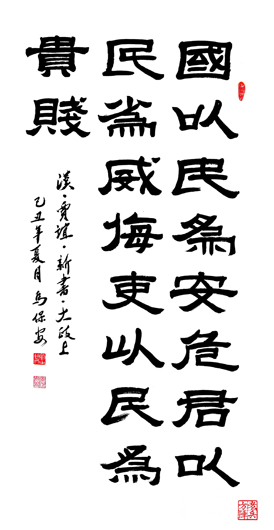 國以民為安危君以
民為威侮吏以民為
貴賤
漢·賈誼·新書·大政上
己丑年夏月馬保安